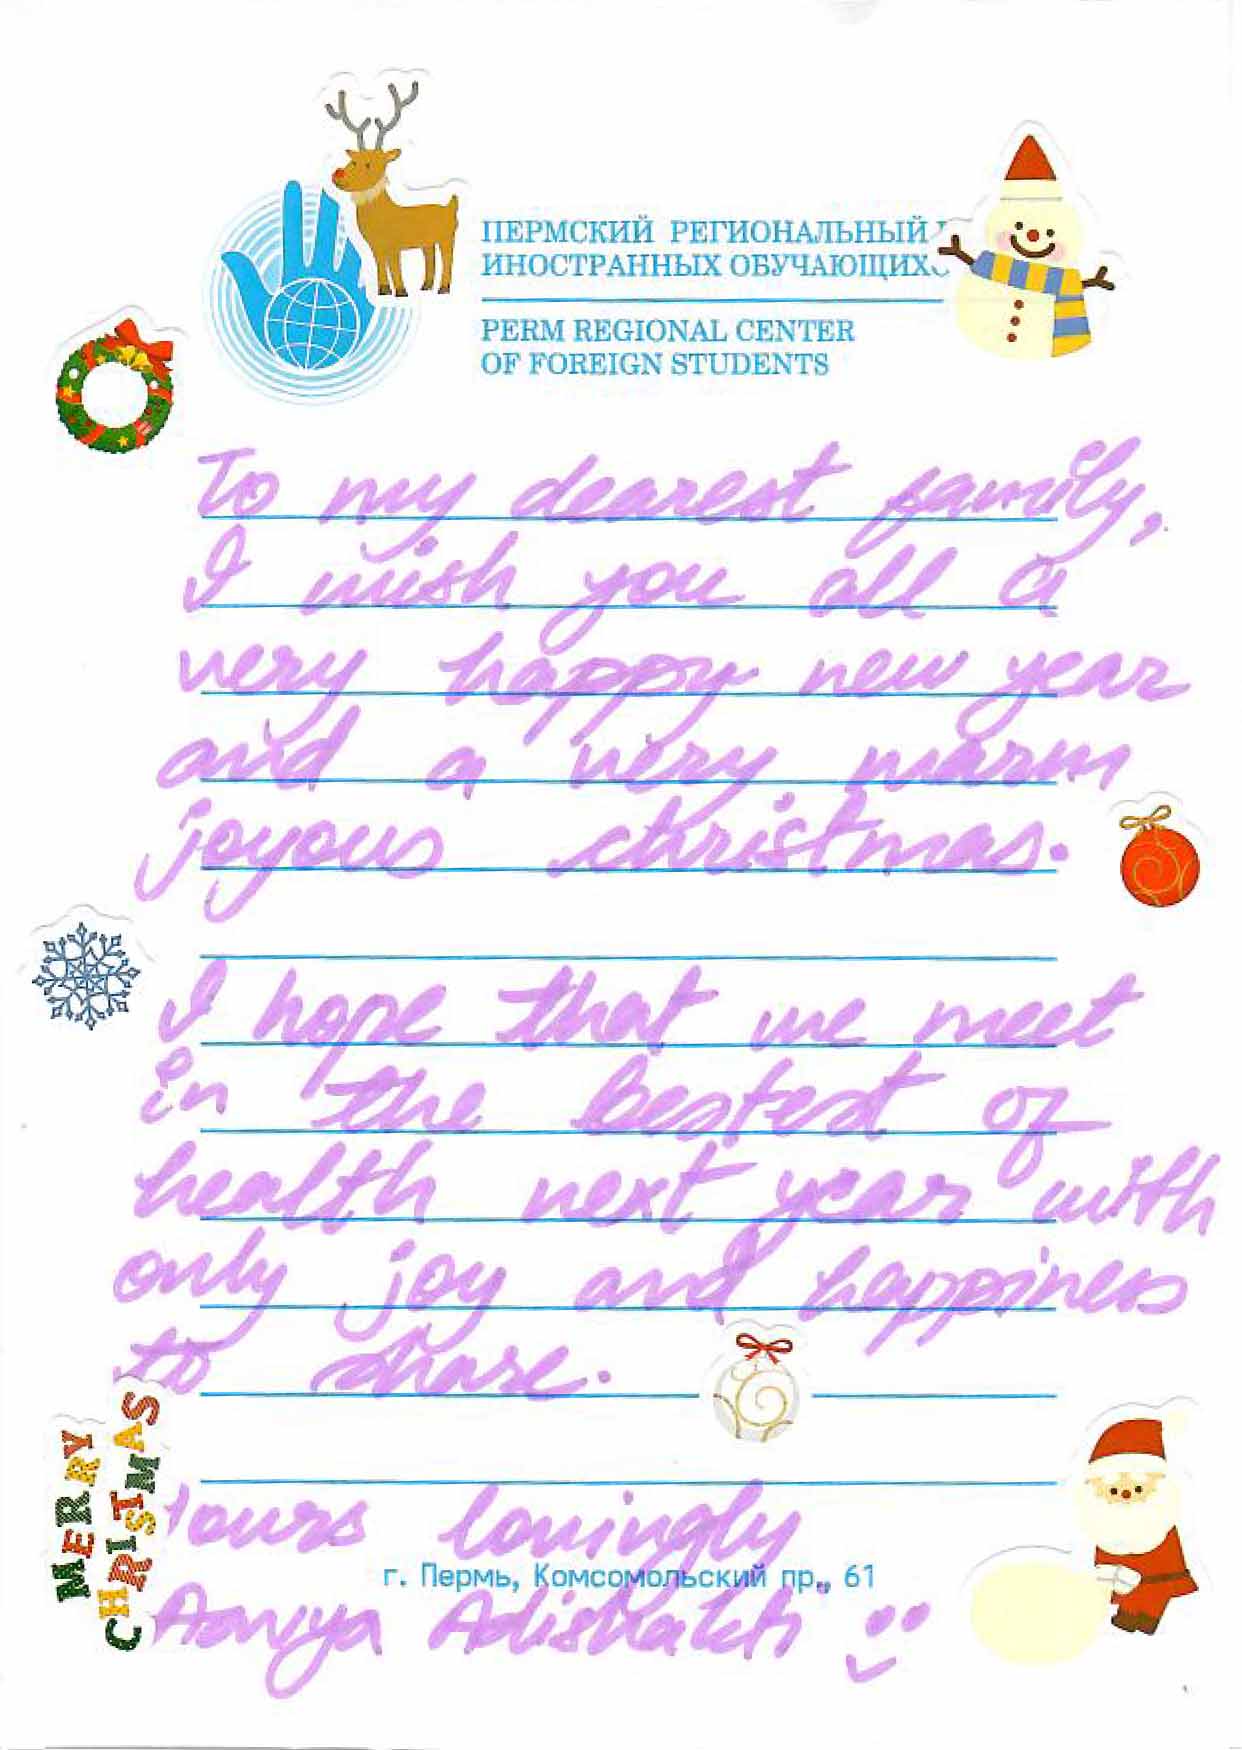 ПЕРМСКИЙ РЕГИОНАЛЬНЫЙ
ИНОСТРАННЫХ ОБУЧАЮЩИХС
PERM REGIONAL CENTER
OF FOREIGN STUDENTS
To my dearest family,
I wish you all a
very happy new year
and a very warm
joyous christmas.
I hope that we meet
in the bestest of
health next year with
only joy and happiness
to share.
MERRY
CHRISTMAS
Yours lovingly
г. Пермь, Комсомольский пр., 61